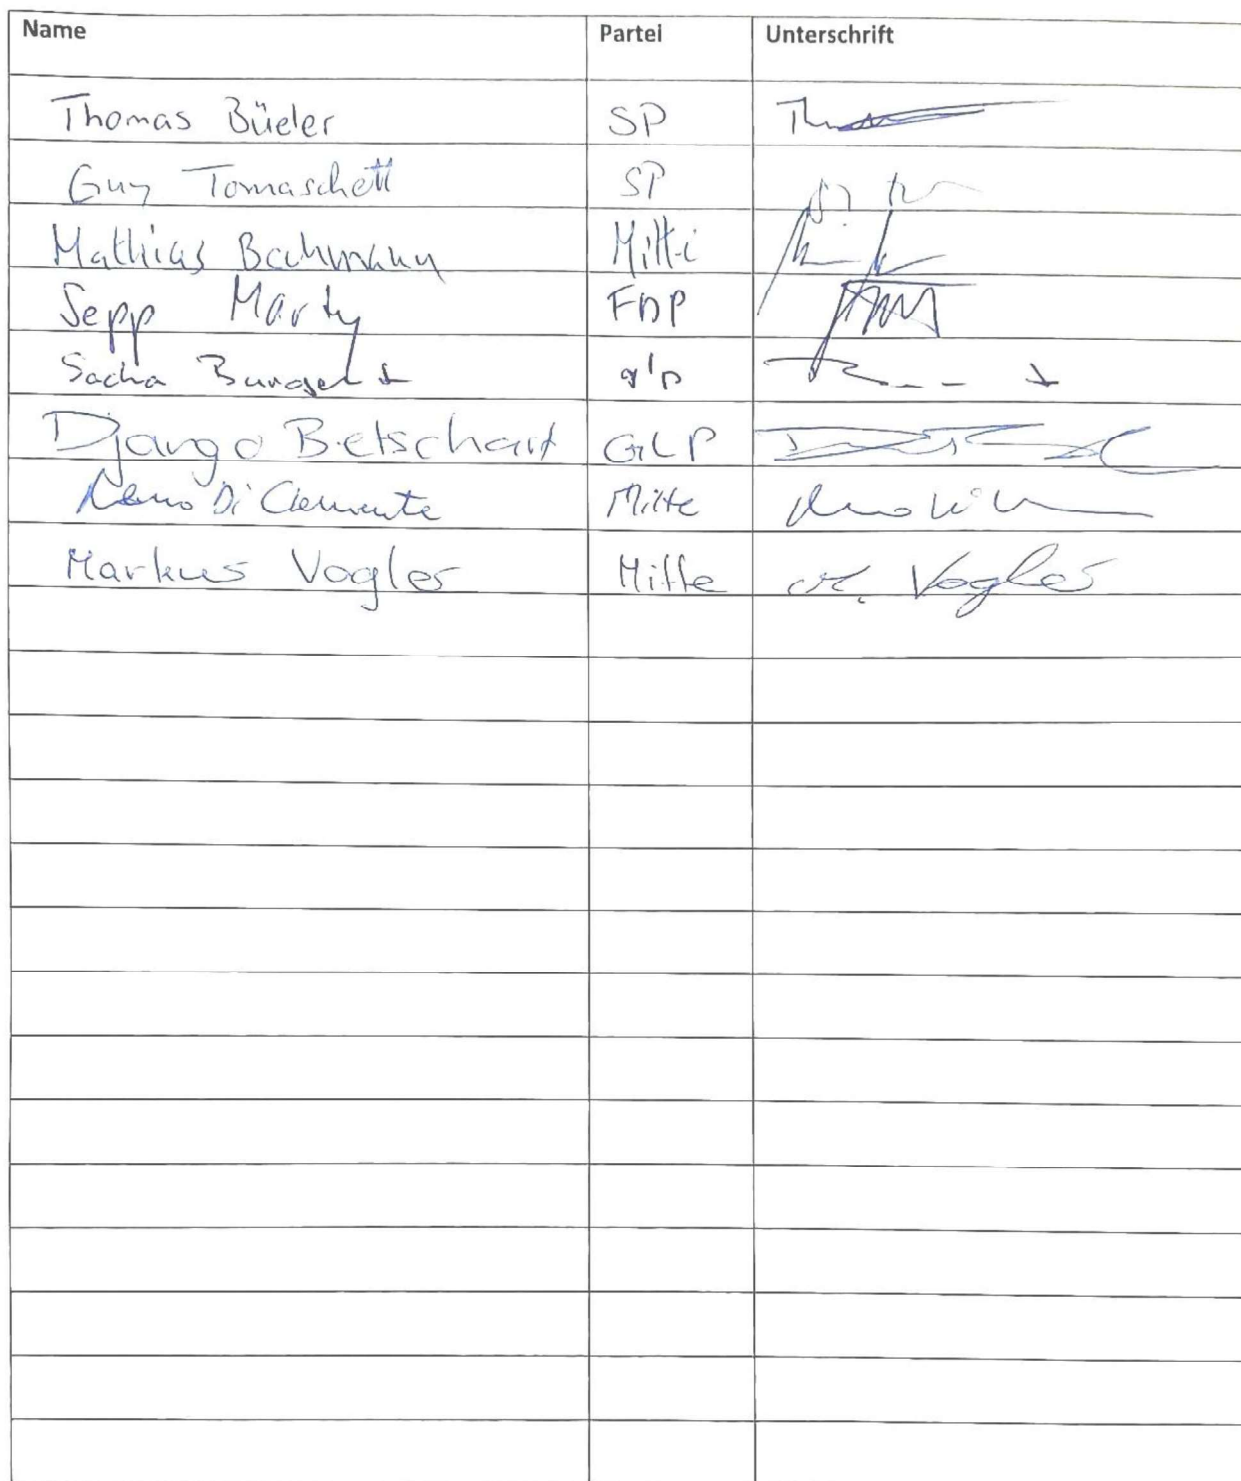 Name Partei Unterschrift
Thomas Büeler SP
Guy Tomaschett SP
Mathias Bachmann Mitte
Sepp Marty FDP
Sacha Burgert glp
Django Betschart GLP
Reno Di Clemente Mitte
Markus Vogler Mitte M. Vogler